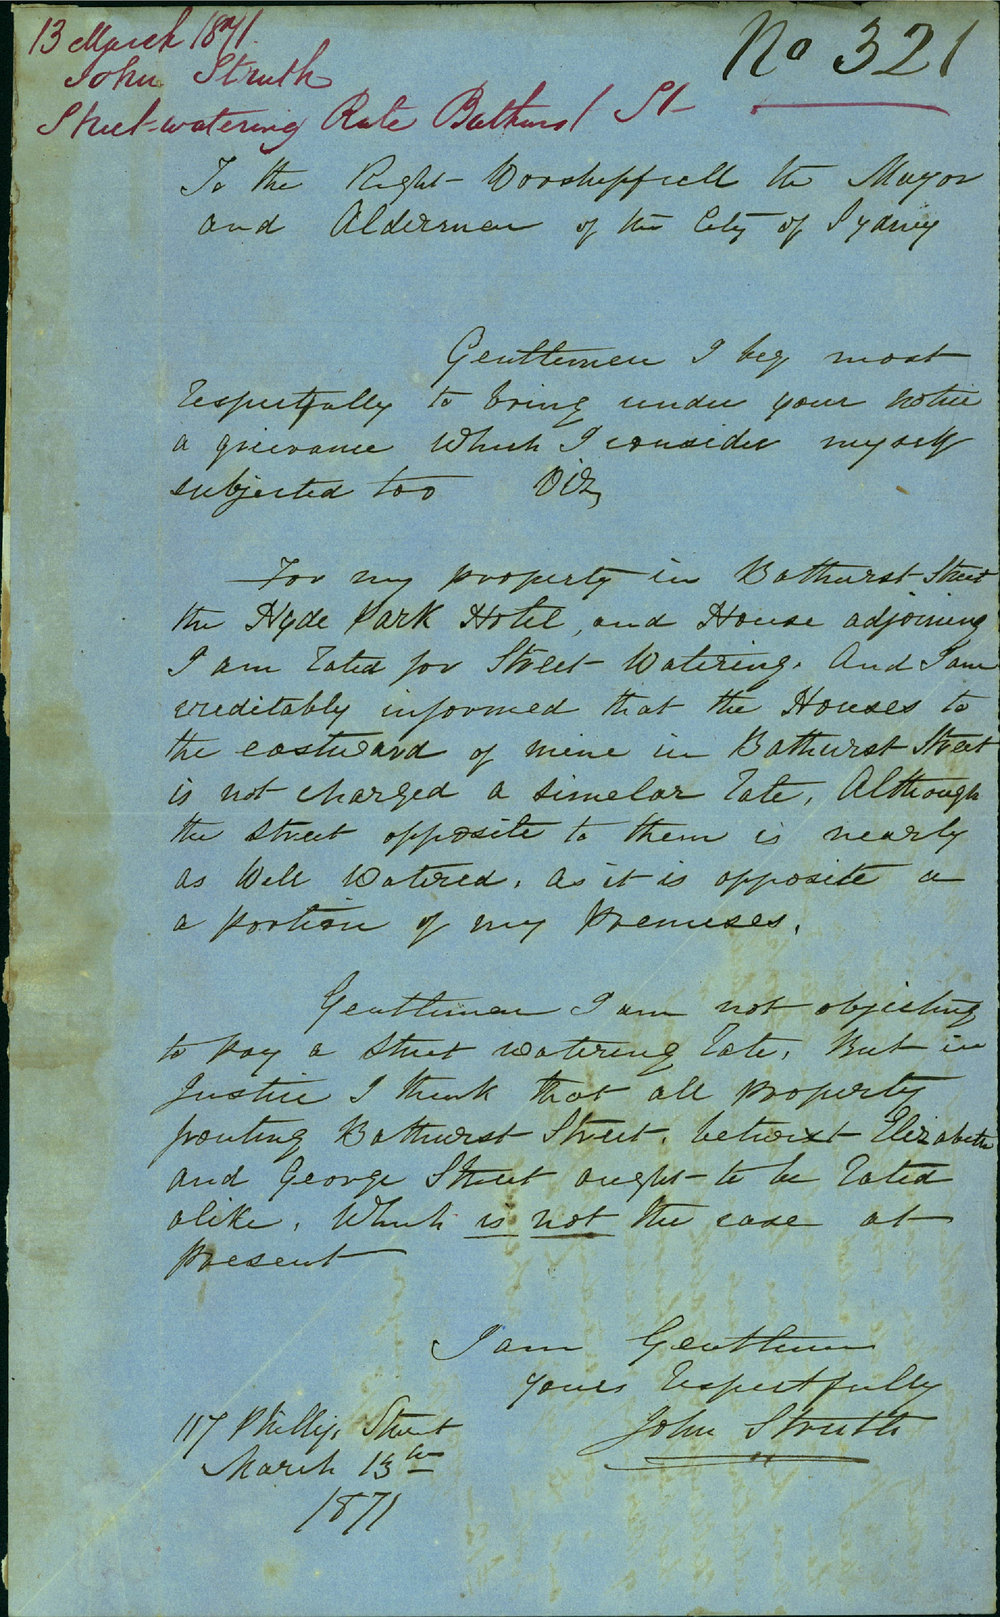 13 March 1871.
No 321
John Struth
Street-watering Rate Bathurst St
To the Right Worsheppfull the Mayor
and Aldermen of the City of Sydney
Gentlemen I beg most
respectfully to bring under your notice
a grievance which I consider myself
subjected too Viz,
For my property in Bathurst Street
the Hyde Park Hotel, and House adjoining
I am rated for Street Watering. And I am
creditably informed that the Houses to
the eastward of mine in Bathurst Street
is not charged a simelar rate, Although
the street opposite to them is nearly
as Well Watered, as it is opposite a
a portion of my Premeses.
Gentlemen I am not objecting
to pay a street watering rate, But in
Justice I think that all property
fronting Bathurst Street, betwixt Elizabeth
and George Street ought to be rated
alike, Which is not the case at
present
I am Gentlemen
yours respectfully
John Struth
117 Phillip Street
March 13th
1871